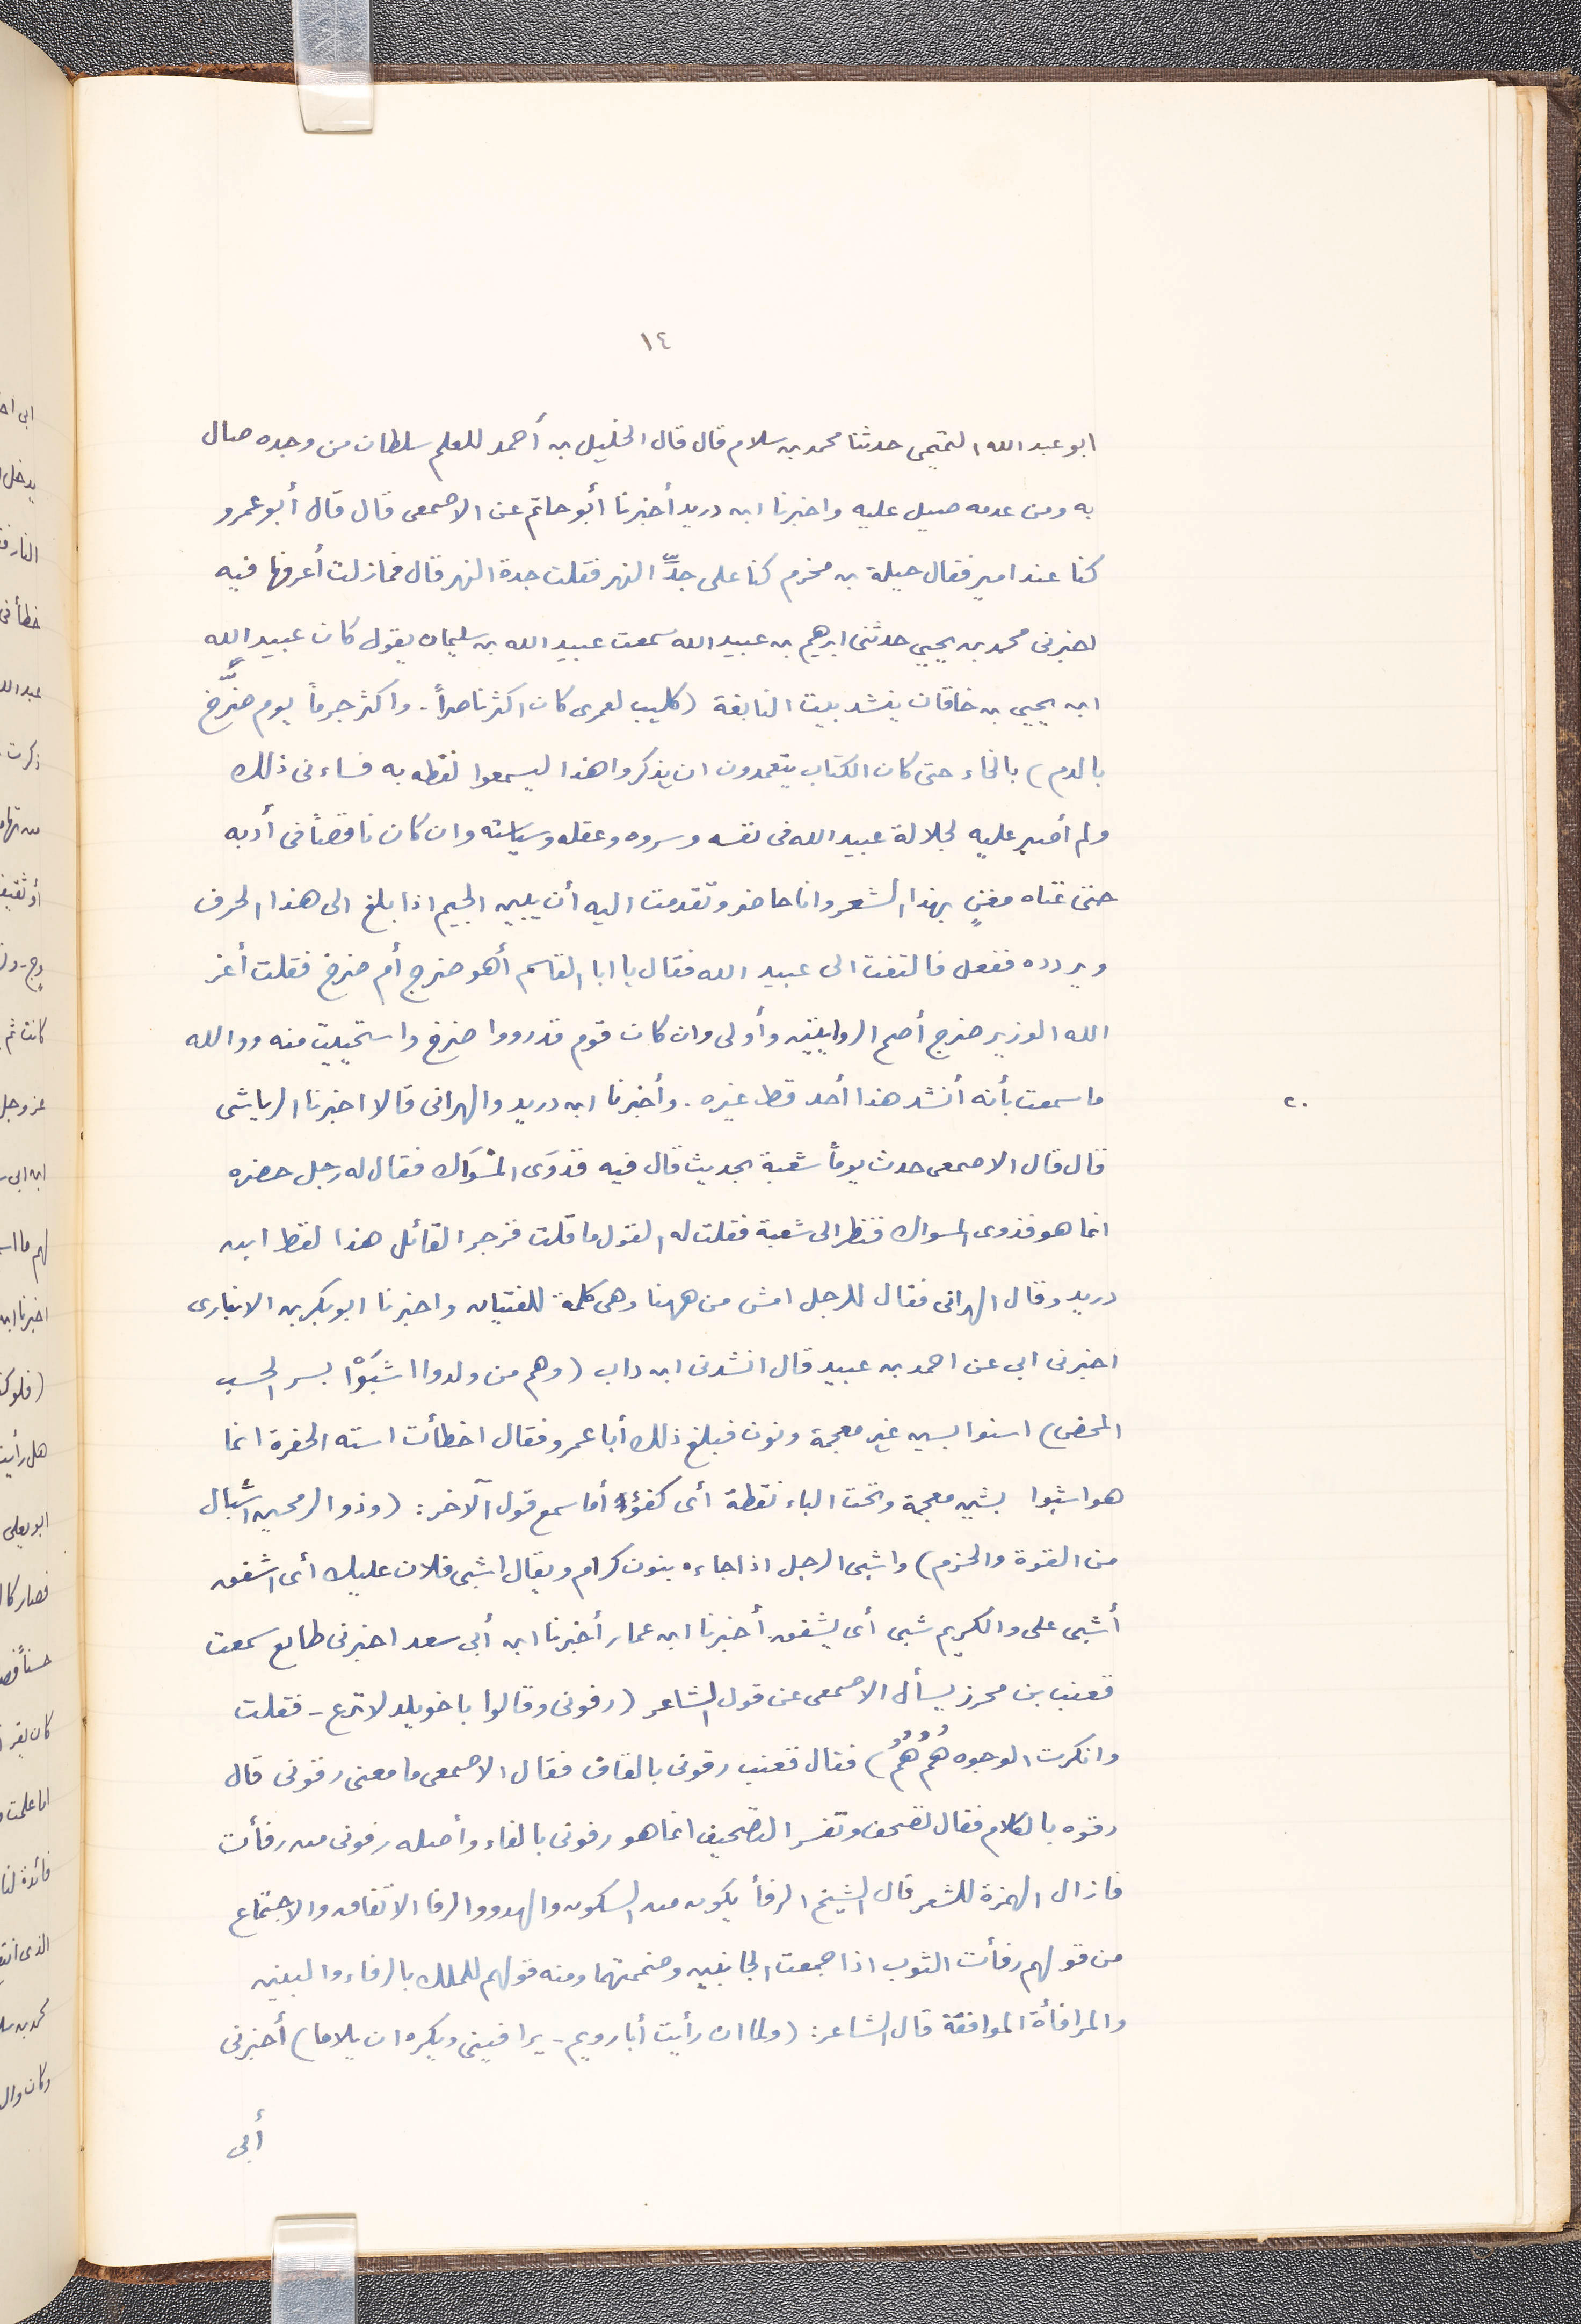 ١٤
ابو عبد الله التميمى حدثنا محمد بن سلام قال قال الخليل بن أحمد للعلم سلطان من وجده صال
به ومن عدمه صيل عليه واخبرنا ابن دريد أخبرنا أبو حاتم عن الاصمعى قال قال أبو عمرو
كنا عند امير فقال جبلة بن مخرم كنا على جدِّ النهر فقلت جدة النهر قال فمازلت أعرفها فيه
اخبرنى محمد بن يحيي حدثنى ابرهيم بن عبيد الله سمعت عبيد الله بن سليمان يقول كان عبيد الله
ابن يحيي بن خاقان ينشد بيت النابغة (كليب لعمرى كان اكثر ناصراً - واكثر جرماً يوم ضرَّخ
بالدم) بالخاء حتى كان الكتاب يتعمدون ان يذكروا هذا ليسمعوا لفظه به فساءنى ذلك
ولم أصبر عليه لجلالة عبيد الله فى نفسه وسروه وعقله وسياسته وان كان ناقصاً فى أدبه
حتى غناه مغنٍ بهذا الشعر وانا حاضر وتقدمت اليه أن يبين الجيم اذا بلغ الى هذا الحرف
ويردده ففعل فالتفت الى عبيد الله فقال يا ابا القاسم أهو ضرج أم ضرخ فقلت أعز
الله الوزير ضرج أصح الروايتين وأولى وان كان قوم قد رووا ضرخ واستحييت منه ووالله
ما سمعت بأنه أنشد هذا أحد قط غيره . وأخبرنا ابن دريد والهرانى قالا اخبرنا الرياشى
٢٠
قال قال الاصمعى حدث يوماً شعبة بحديث قال فيه قد وَى المسْوَاك فقال له رجل حضره
انما هو فذوى المسواك فنظر الى شعبة فقلت له القول ما قلت فزجر القائل هذا لفظ ابن
دريد وقال الهرانى فقال للرجل امش من ههنا وهى كلمة للفتيان واخبرنا ابو بكر بن الانبارى
اخبرنى ابى عن احمد بن عبيد قال انشدنى ابن داب (وهم من ولدوا اشبَوْا بسر الحسب
المحض) اسنوا بسين غير معجمة ونون فبلغ ذلك أبا عمرو فقال اخطأت استه الحفرة انما
هو اشبوا بشين معجمة وتحت الباء نقطة أى كفؤ أما سمع قول الآخر : (وذو الرمحين اشبال
من القوة والحزم) واشبى الرجل اذا جاءه بنون كرام ويقال اشبى فلان عليك أى اشفق
أشبى على والكريم شبى أى يشفق . أخبرنا ابن عمار أخبرنا ابن أبى سعد اخبرنى طايع سمعت
قعنب بن محرز يسأل الاصمعى عن قول الشاعر (رفونى وقالوا يا خويلد لا ترع - فقلت
وانكرت الوجوه هُمُ هُمُ) فقال قعنب رقونى بالقاف فقال الاصمعى ما معنى رقونى قال
رقوه بالكلام فقال تصحف وتفسر التصحيف انما هو رفونى بالفاء وأصله رفونى من رفأت
فازال الهمزة للشعر قال الشيخ الرفأ يكون من السكون والهدو والرفا الاتفاق والاجتماع
من قولهم رفأت الثوب اذا جمعت الجانبين وضممتهما ومنه قولهم للملك بالرفاء والبنين
والمرافأة الموافقة قال الشاعر : (ولما ان رأيت أبا رويم - يرافينى ويكره ان يلاما) أخبرنى
أبى